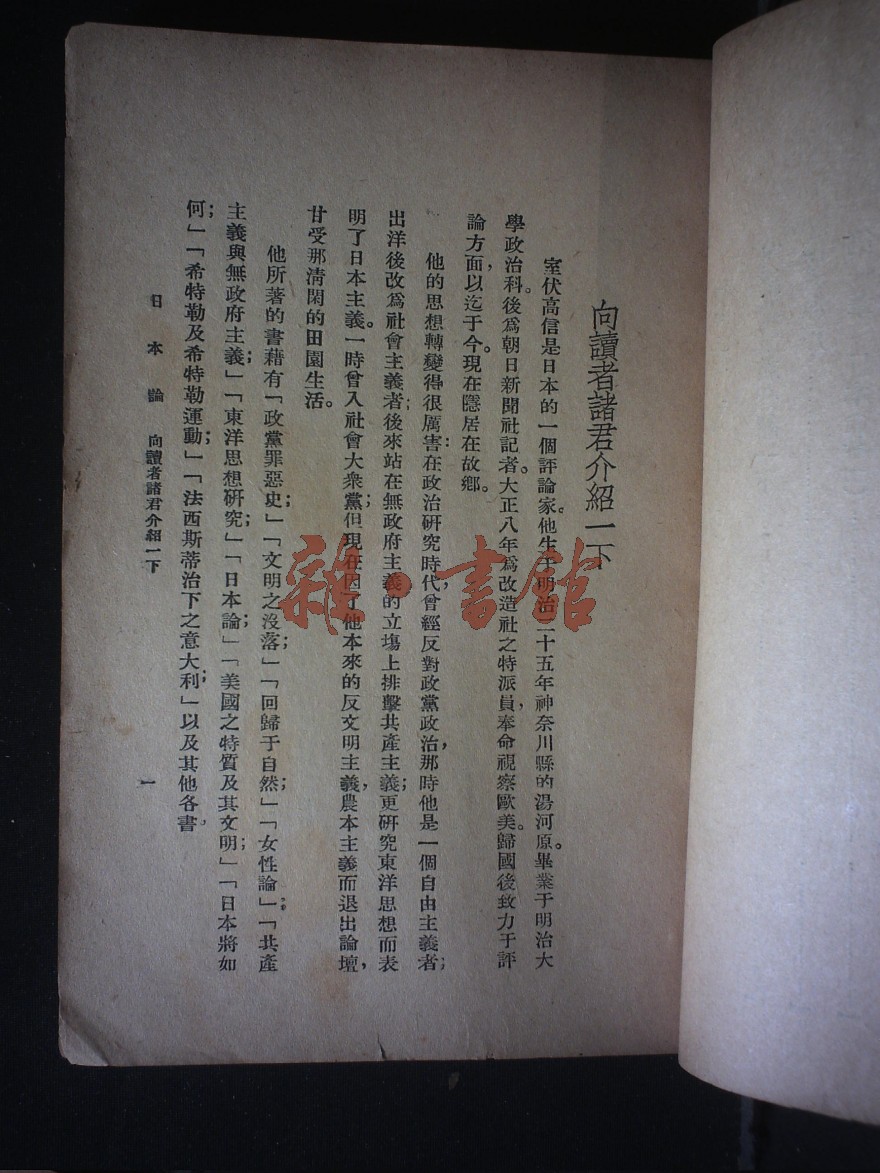 向讀者諸君介紹一下
室伏高信是日本的一個評論家。他生于明治二十五年神奈川縣的湯河原。畢業于明治大
學政治科。後爲朝日新聞社記者。大正八年爲改造社之特派員，奉命視察歐美。歸國後致力于評
論方面，以迄于今。現在隱居在故鄉。
他的思想轉變得很厲害：在政治研究時代，曾經反對政黨政治，那時他是一個自由主義者；
出洋後改爲社會主義者；後來站在無政府主義的立塲上排擊共產主義；更研究東洋思想而表
明了日本主義。一時曾入社會大衆黨；但現在因了他本來的反文明主義，農本主義而退出論壇，
甘受那淸閑的田園生活。
他所著的書藉有「政黨罪惡史」；「文明之沒落」；「回歸于自然」；「女性論」；「共產
主義與無政府主義」；「東洋思想研究」；「日本論」；「美國之特質及其文明」；「日本將如
何」；「希特勒及希特勒運動」；「法西斯蒂治下之意大利」；以及其他各書，
日本論 向讀者諸君介紹一下
一
雜·書館